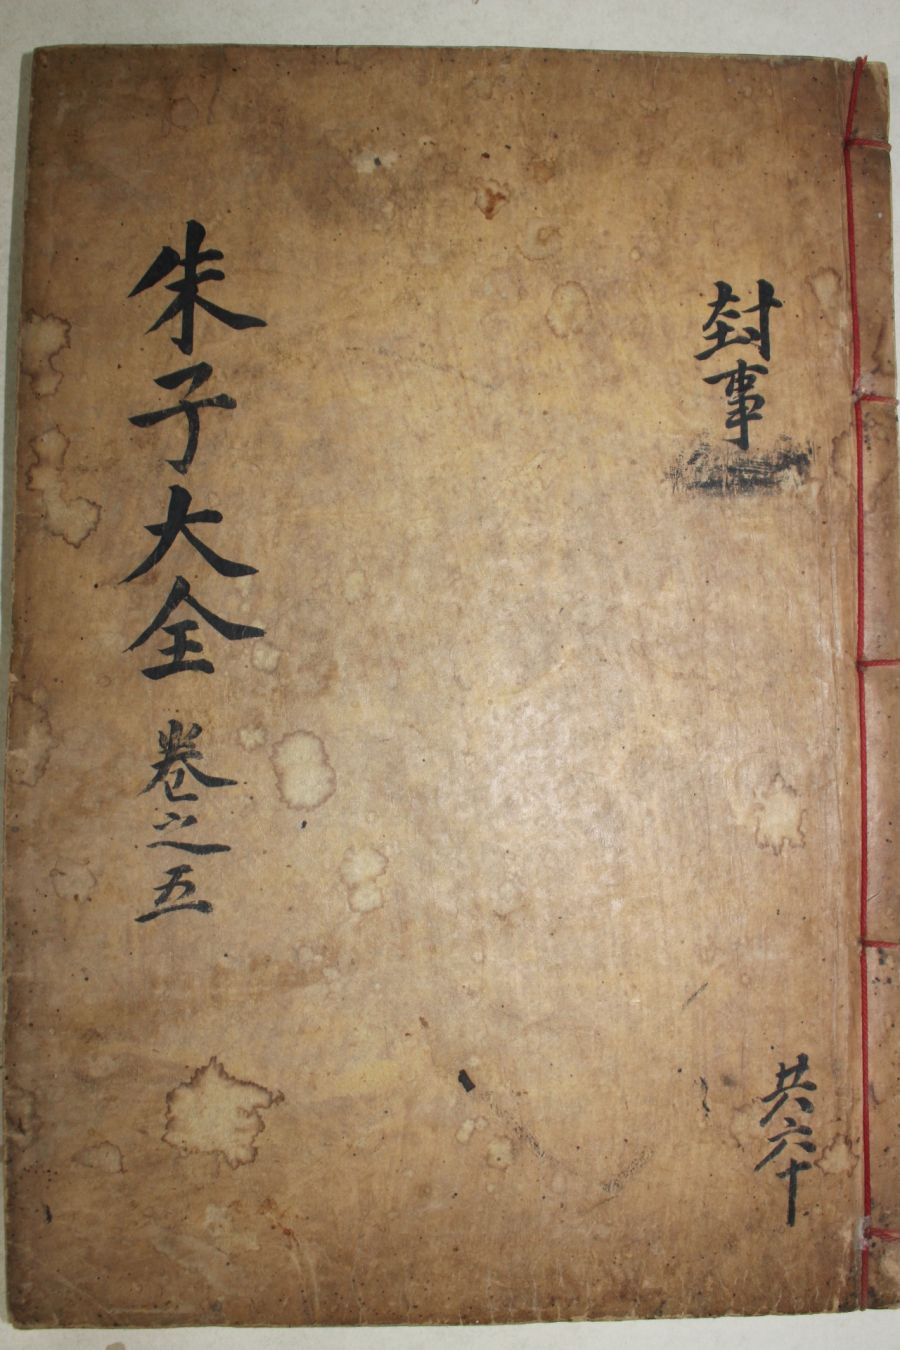 封事
共六十
朱子大全 卷之五